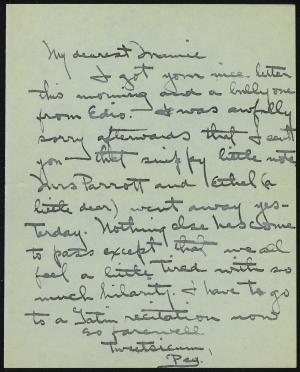 My dearest Mamie
I got your nice letter
this morning and a bully one
from Edio. I was awfully
sorry afterwards that I sent
you that snippy little note
Mrs Parrott and Ethel (a
little dear) went away yes-
terday. Nothing else has come
to pass except that we all
feel a little tired with so
much hilarity. I have to go
to a Latin recitation now
so farewell
Peg.